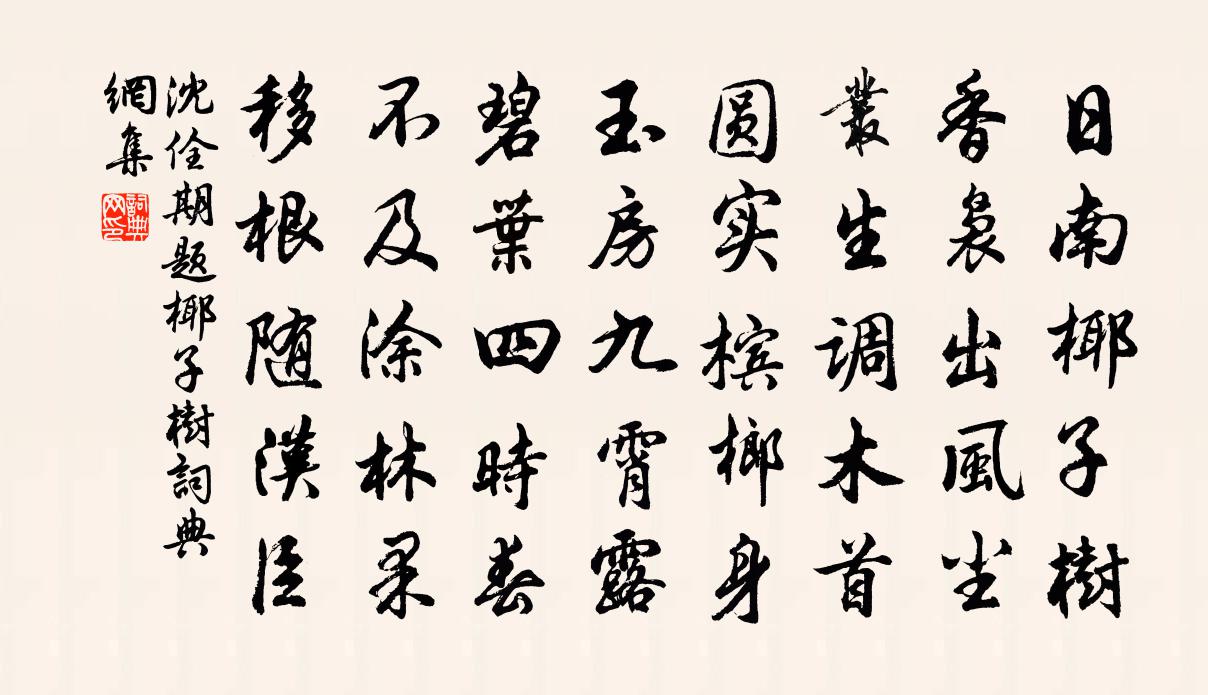 日南椰子樹
香袅出風尘
叢生调木首
圆实槟榔身
玉房九霄露
碧葉四時春
不及涂林果
移根随漢臣
沈佺期题椰子樹詞典
網集
詞典
网印